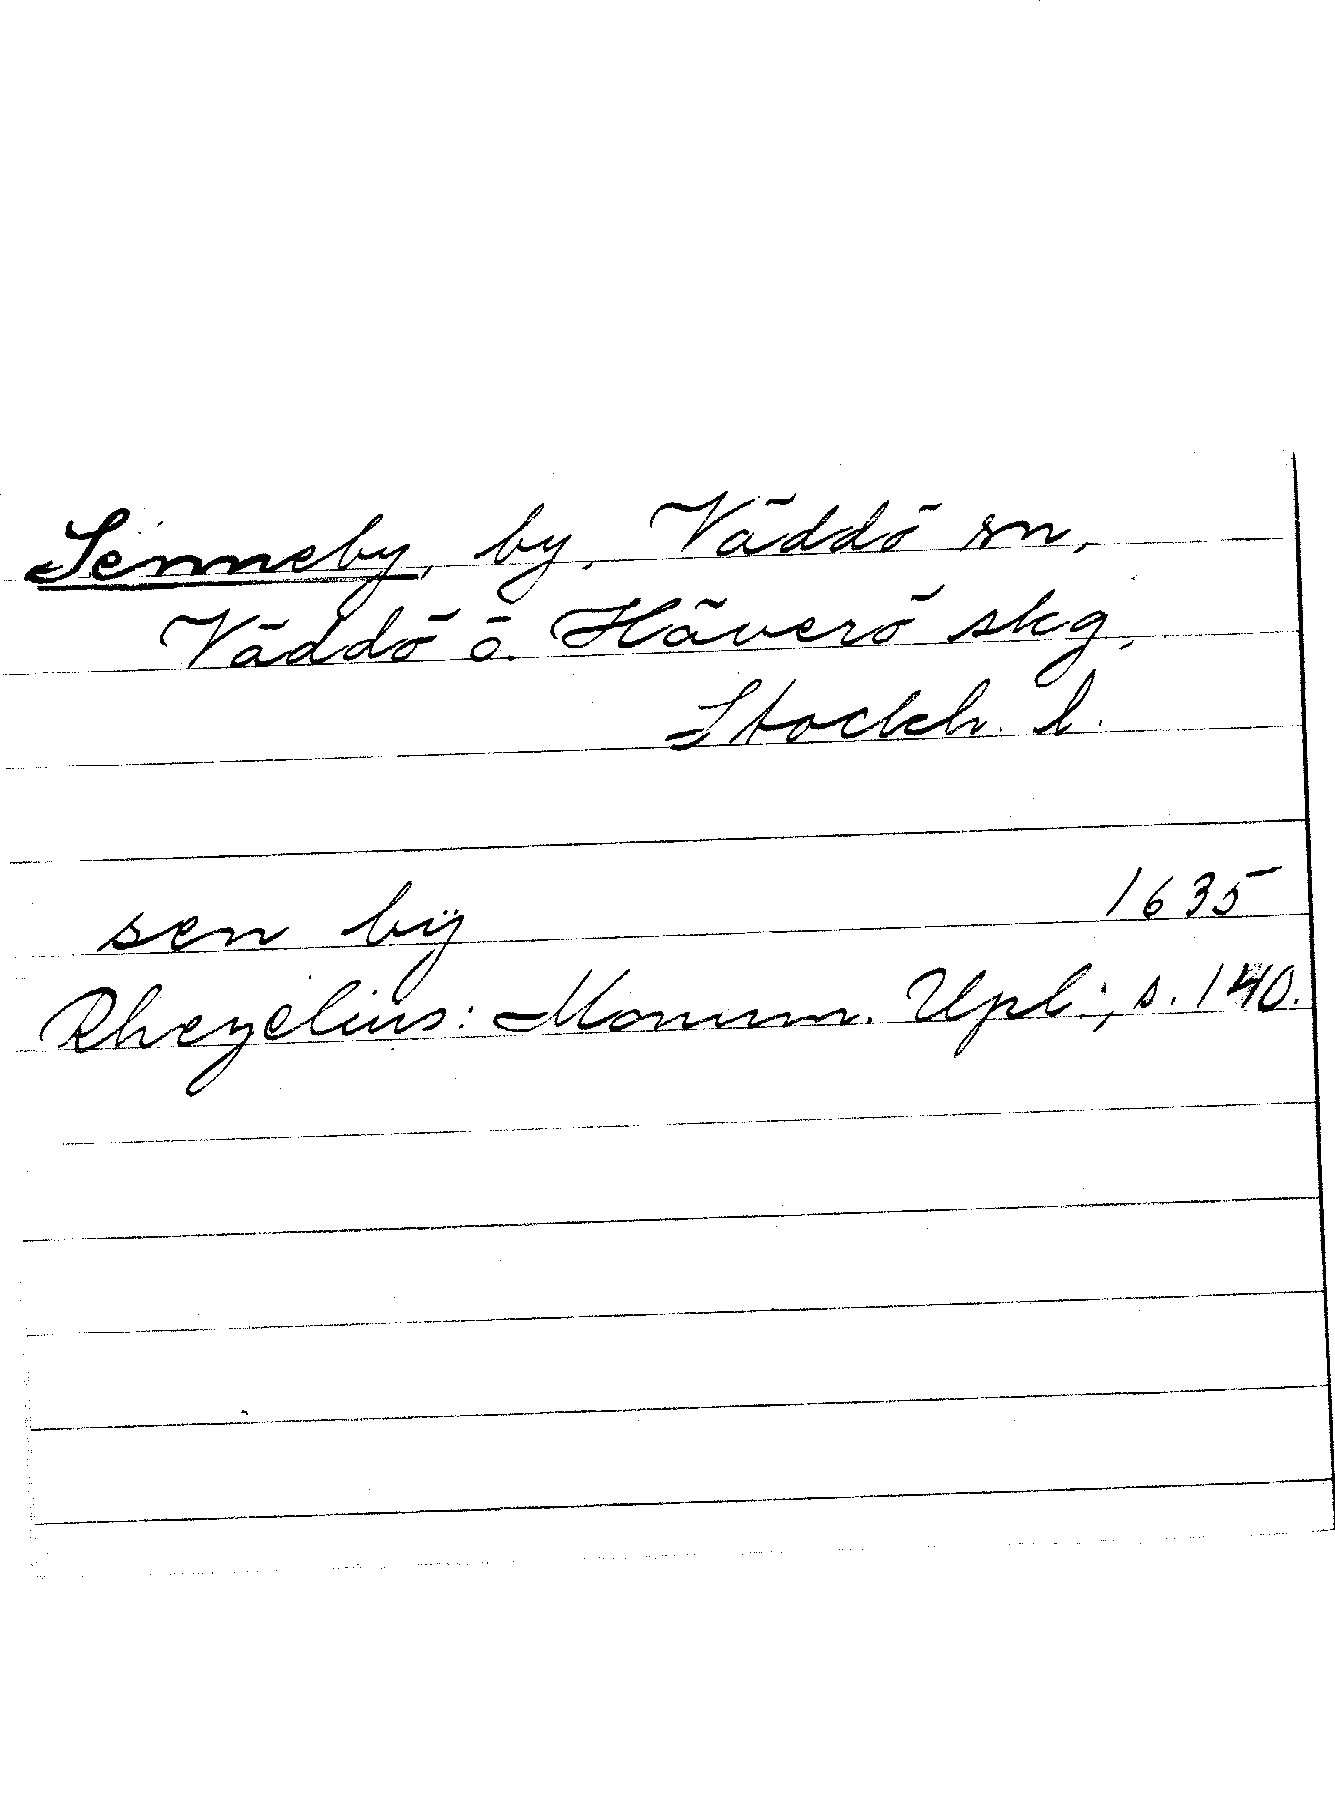 Senneby, by, Väddö sn,
Väddö ö. Häverö skg,
Stockh. l.
sen bÿ 1635
Rhezelius: Monum. Upl., s. 140.